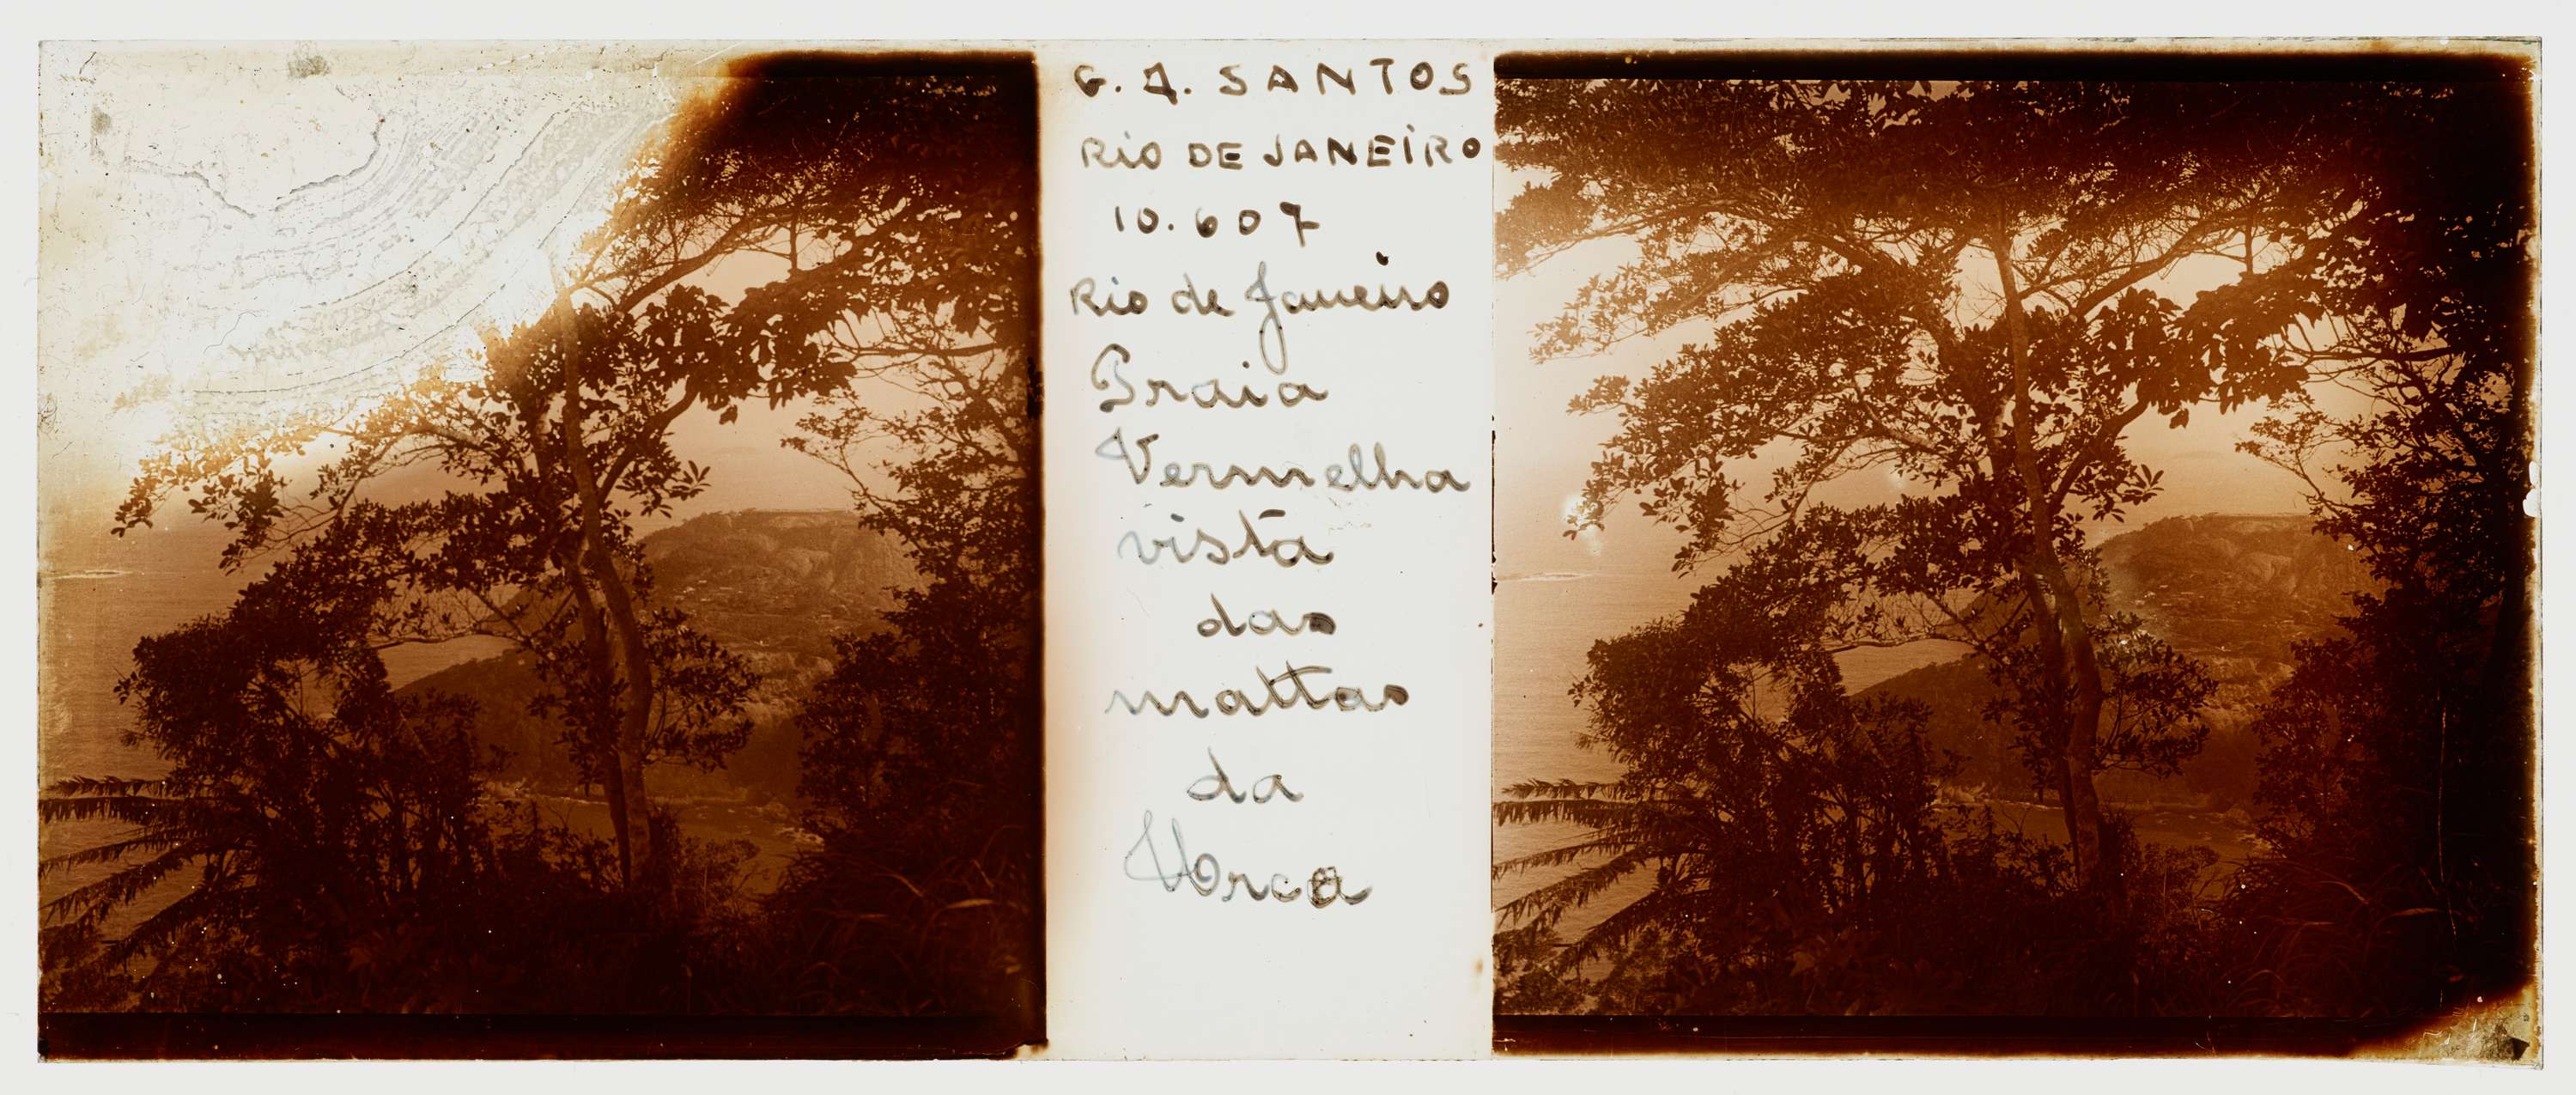 G. A. SANTOS
RiO DE JANEiRO
10.607
Rio de Janeiro
Praia
Vermelha
vista
das
mattas
da
Urca